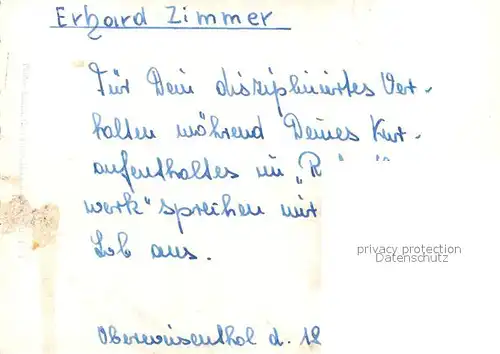 Erhard Zimmer
Für Dein diszipliniertes Ver-
halten während Deines Kur-
aufenthaltes im „R
werk" sprechen wir
Lob aus.
privacy protection
Datenschutz
Oberwiesenthal d. 12